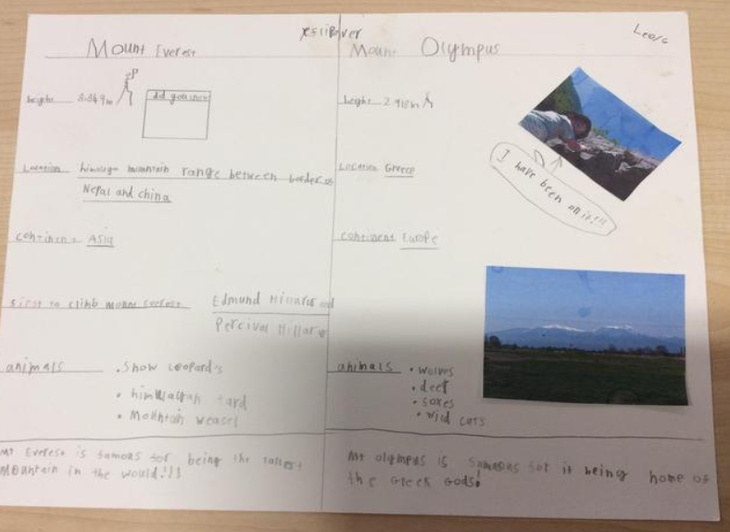 Mount Everest
height 8.849m
did you know
Location himalaya mountain range between borders of
Nepal and china
continent Asia
first to climb mount Everest Edmund Hillary and
Percival Hillary
animals • Snow Leopards
• himalayan tard
• Mountain weasel
Mt Everest is famous for being the tallest
Mountain in the would!!!
Mount Olympus
height 2.918m
Location Greece
continent Europe
animals • wolves
• deer
• foxes
• wild cats
Mt olympus is famous for it being home of
the Greek Gods!
I have been on it!!!